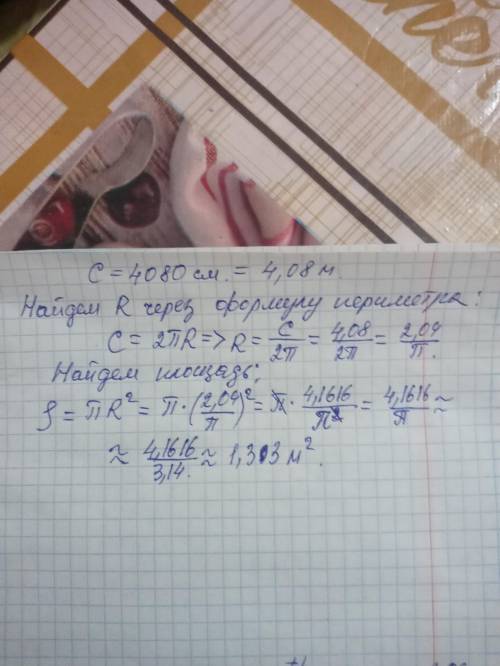 C = 4080 см. = 4,08 м.
Найдем R через формулу периметра:
C = 2πR => R = C/2π = 4,08/2π = 2,04/π.
Найдем площадь:
S = πR² = π · (2,04/π)² = π · 4,1616/π² = 4,1616/π ≈
≈ 4,1616/3,14. ≈ 1,33 м².